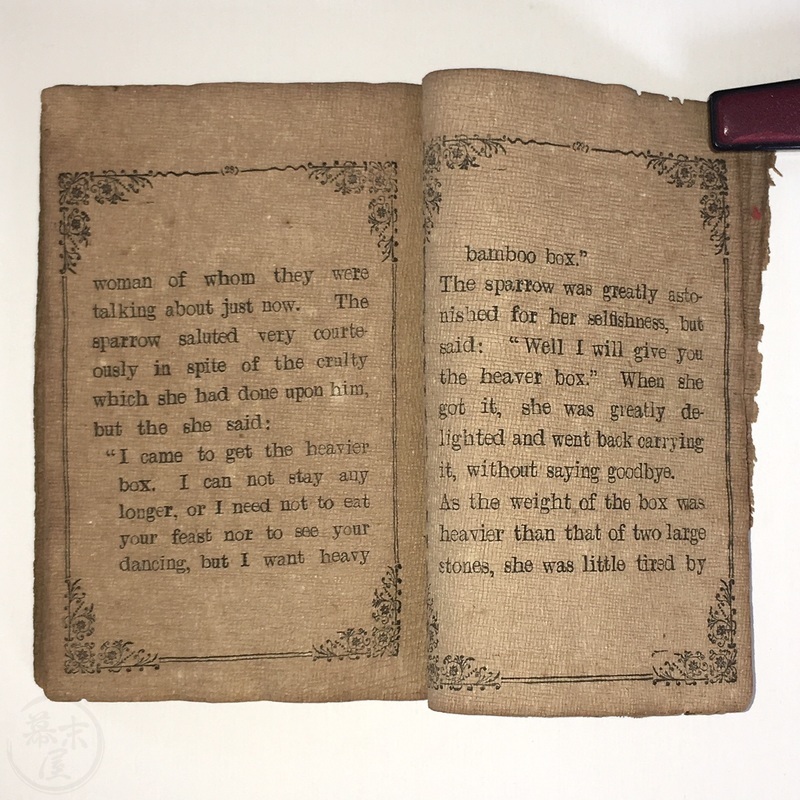 woman of whom they were
talking about just now. The
sparrow saluted very courte-
ously in spite of the crulty
which she had done upon him,
but the she said:
“I came to get the heavier
box. I can not stay any
longer, or I need not to eat
your feast nor to see your
dancing, but I want heavy
bamboo box.”
The sparrow was greatly asto-
nished for her selfishness, but
said: “Well I will give you
the heaver box.” When she
got it, she was greatly de-
lighted and went back carrying
it, without saying goodbye.
As the weight of the box was
heavier than that of two large
stones, she was little tired by
幕末屋